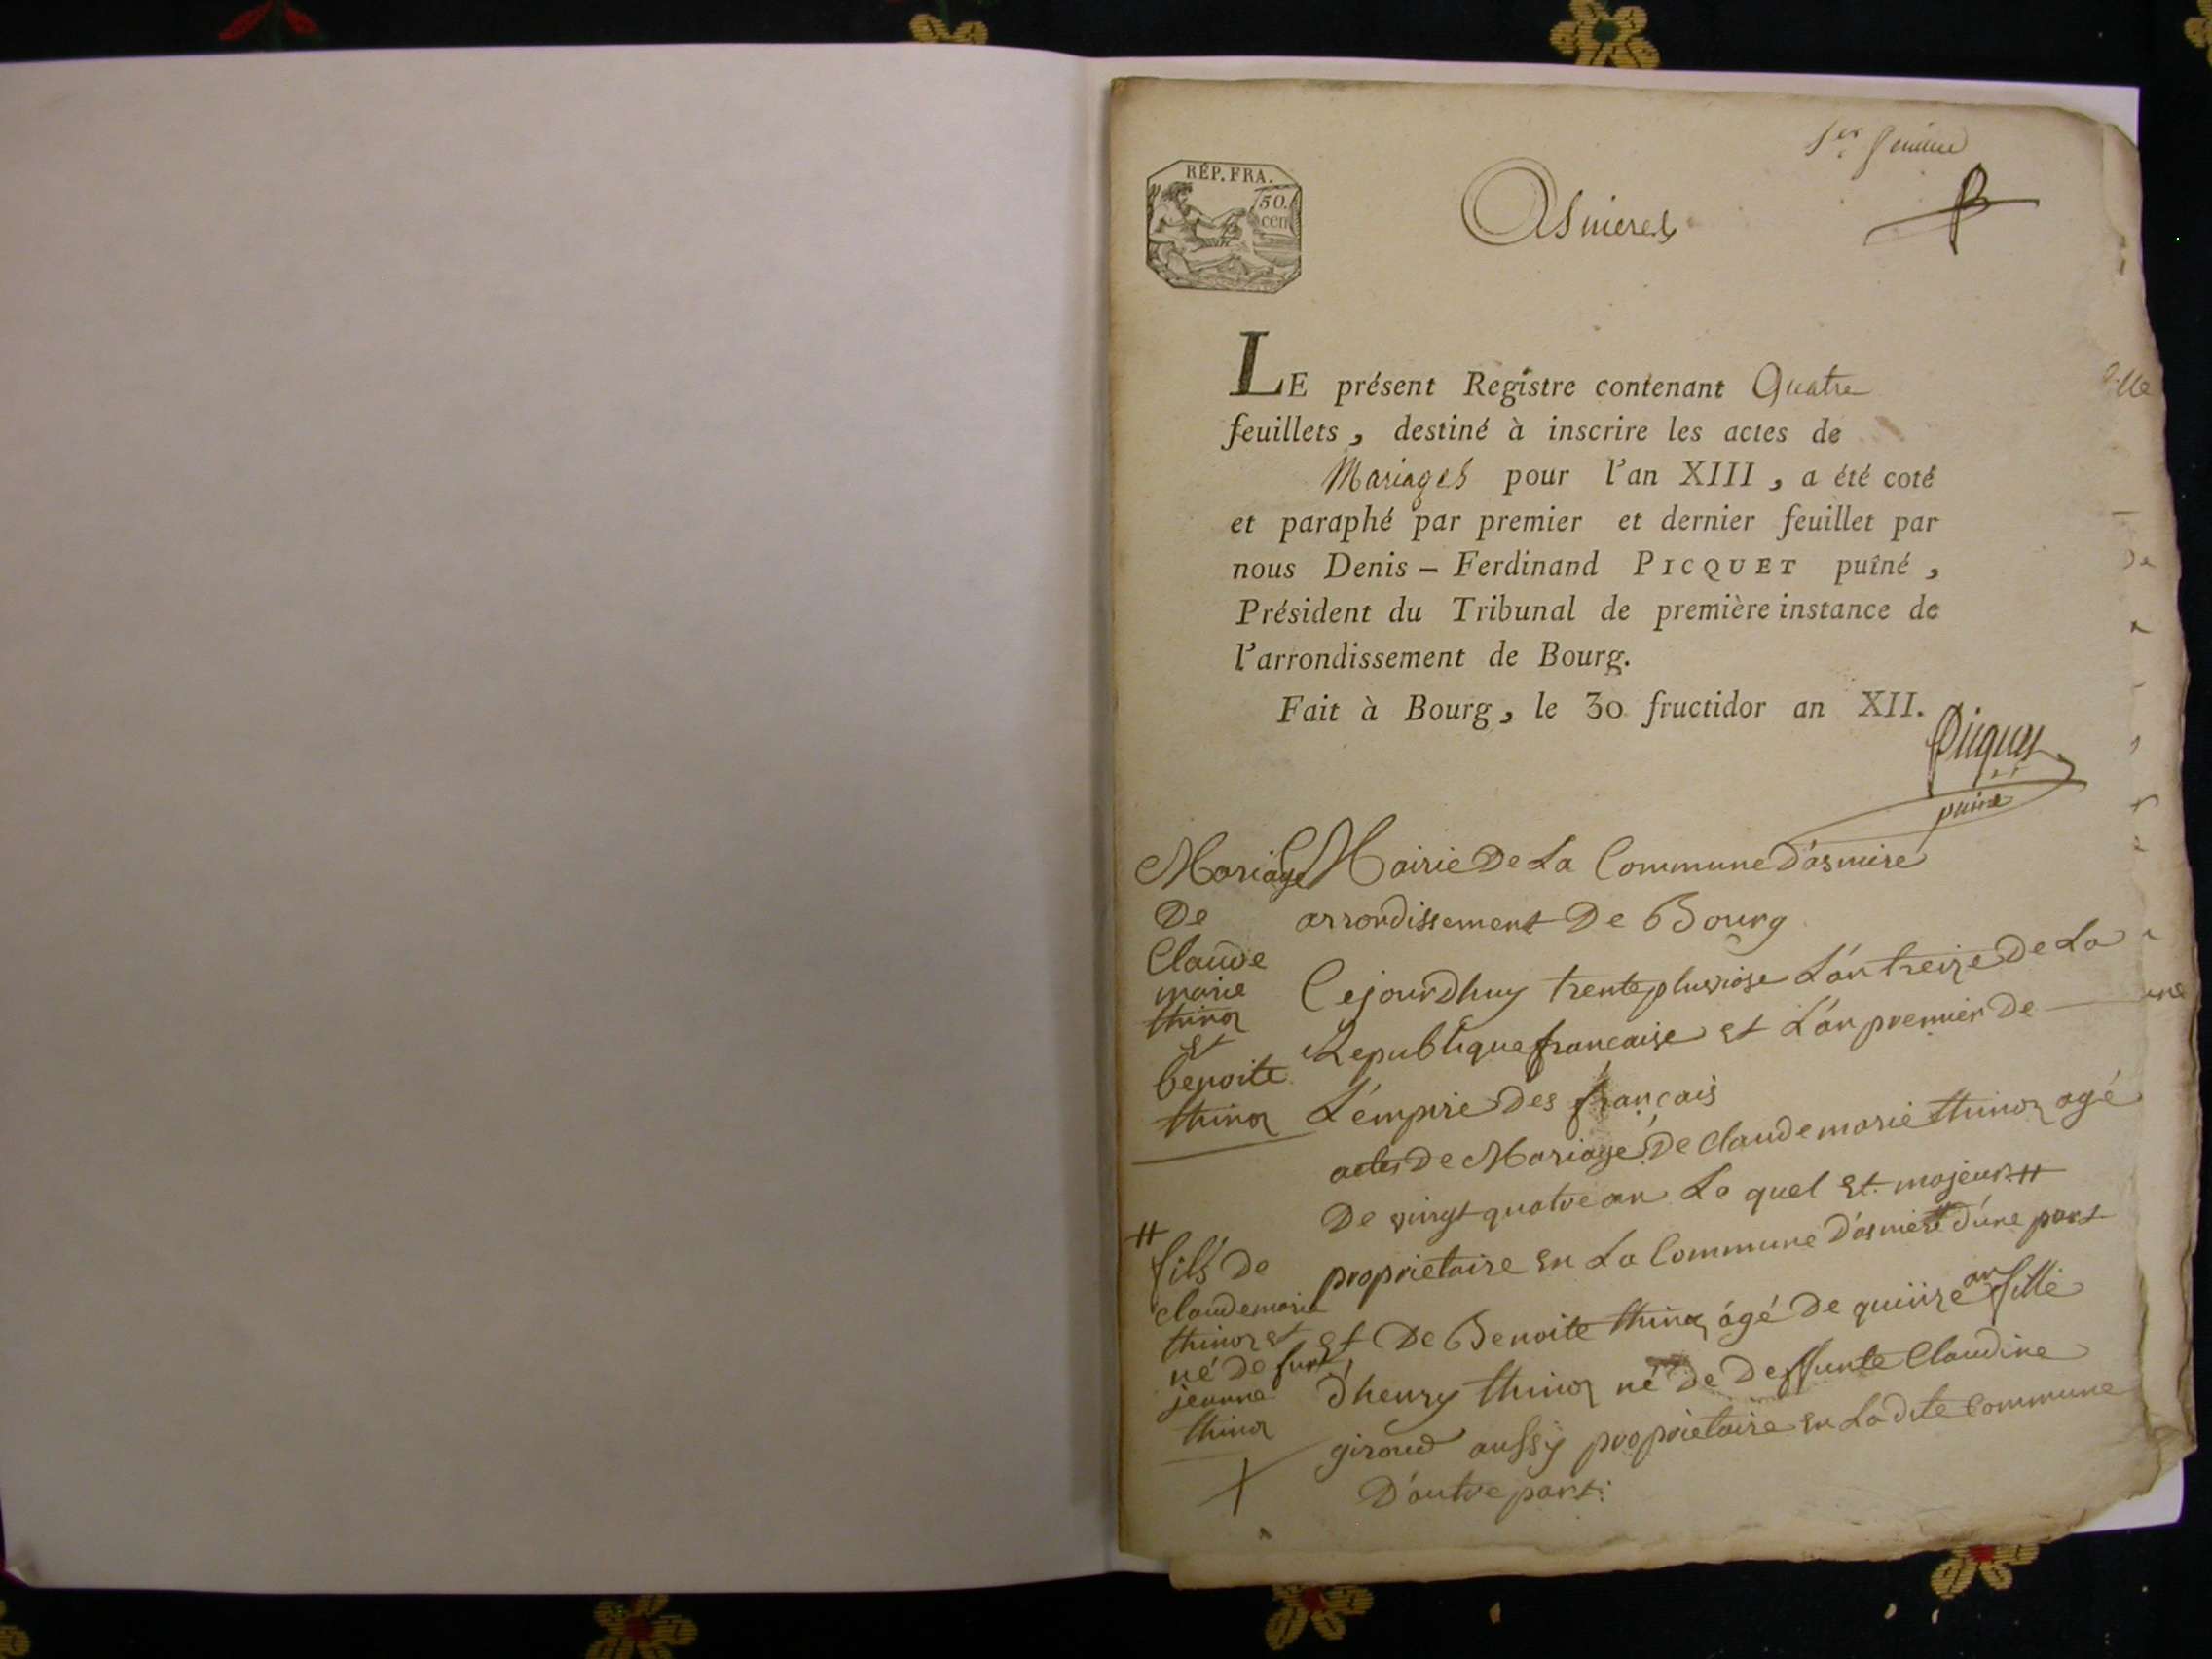 1er feuillet
RÉP. FRA.
50.
cen
Asnieres
LE présent Registre contenant Quatre
feuillets, destiné à inscrire les actes de
Mariages pour l'an XIII, a été coté
et paraphé par premier et dernier feuillet par
nous Denis - Ferdinand PICQUET puîné,
Président du Tribunal de première instance de
l'arrondissement de Bourg.
Fait à Bourg, le 30 fructidor an XII.
Picquet
puiné
Mariage
De
Claude
marie
thinon
et
benoite
thinon
Mairie De La Commune D'asniere
arrondissement De Bourg
CejourDhuy trente pluviose L'an treize De La
Republique francaise et L'an premier De
L'empire Des français
actes De Mariage De Claude marie thinon agé
De vingt quatre an Le quel et majeur #
proprietaire en La Commune D'asniere d'une part
et De Benoite thinon ágé De quinze an fille
D'henry thinon né De Deffunte Claudine
giroud aussy proprietaire en La dite Commune
D'autre part:
# fils De
claude marie
thinon et
né De funt
jeanne
thinon